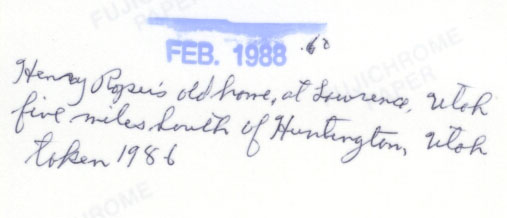 FUJICHROME PAPER
FEB. 1988 .60
FUJICHROME PAPER
Henry Roper's old home, at Lawrence, Utah
five miles South of Huntington, Utah
taken 1986
FUJICHROME